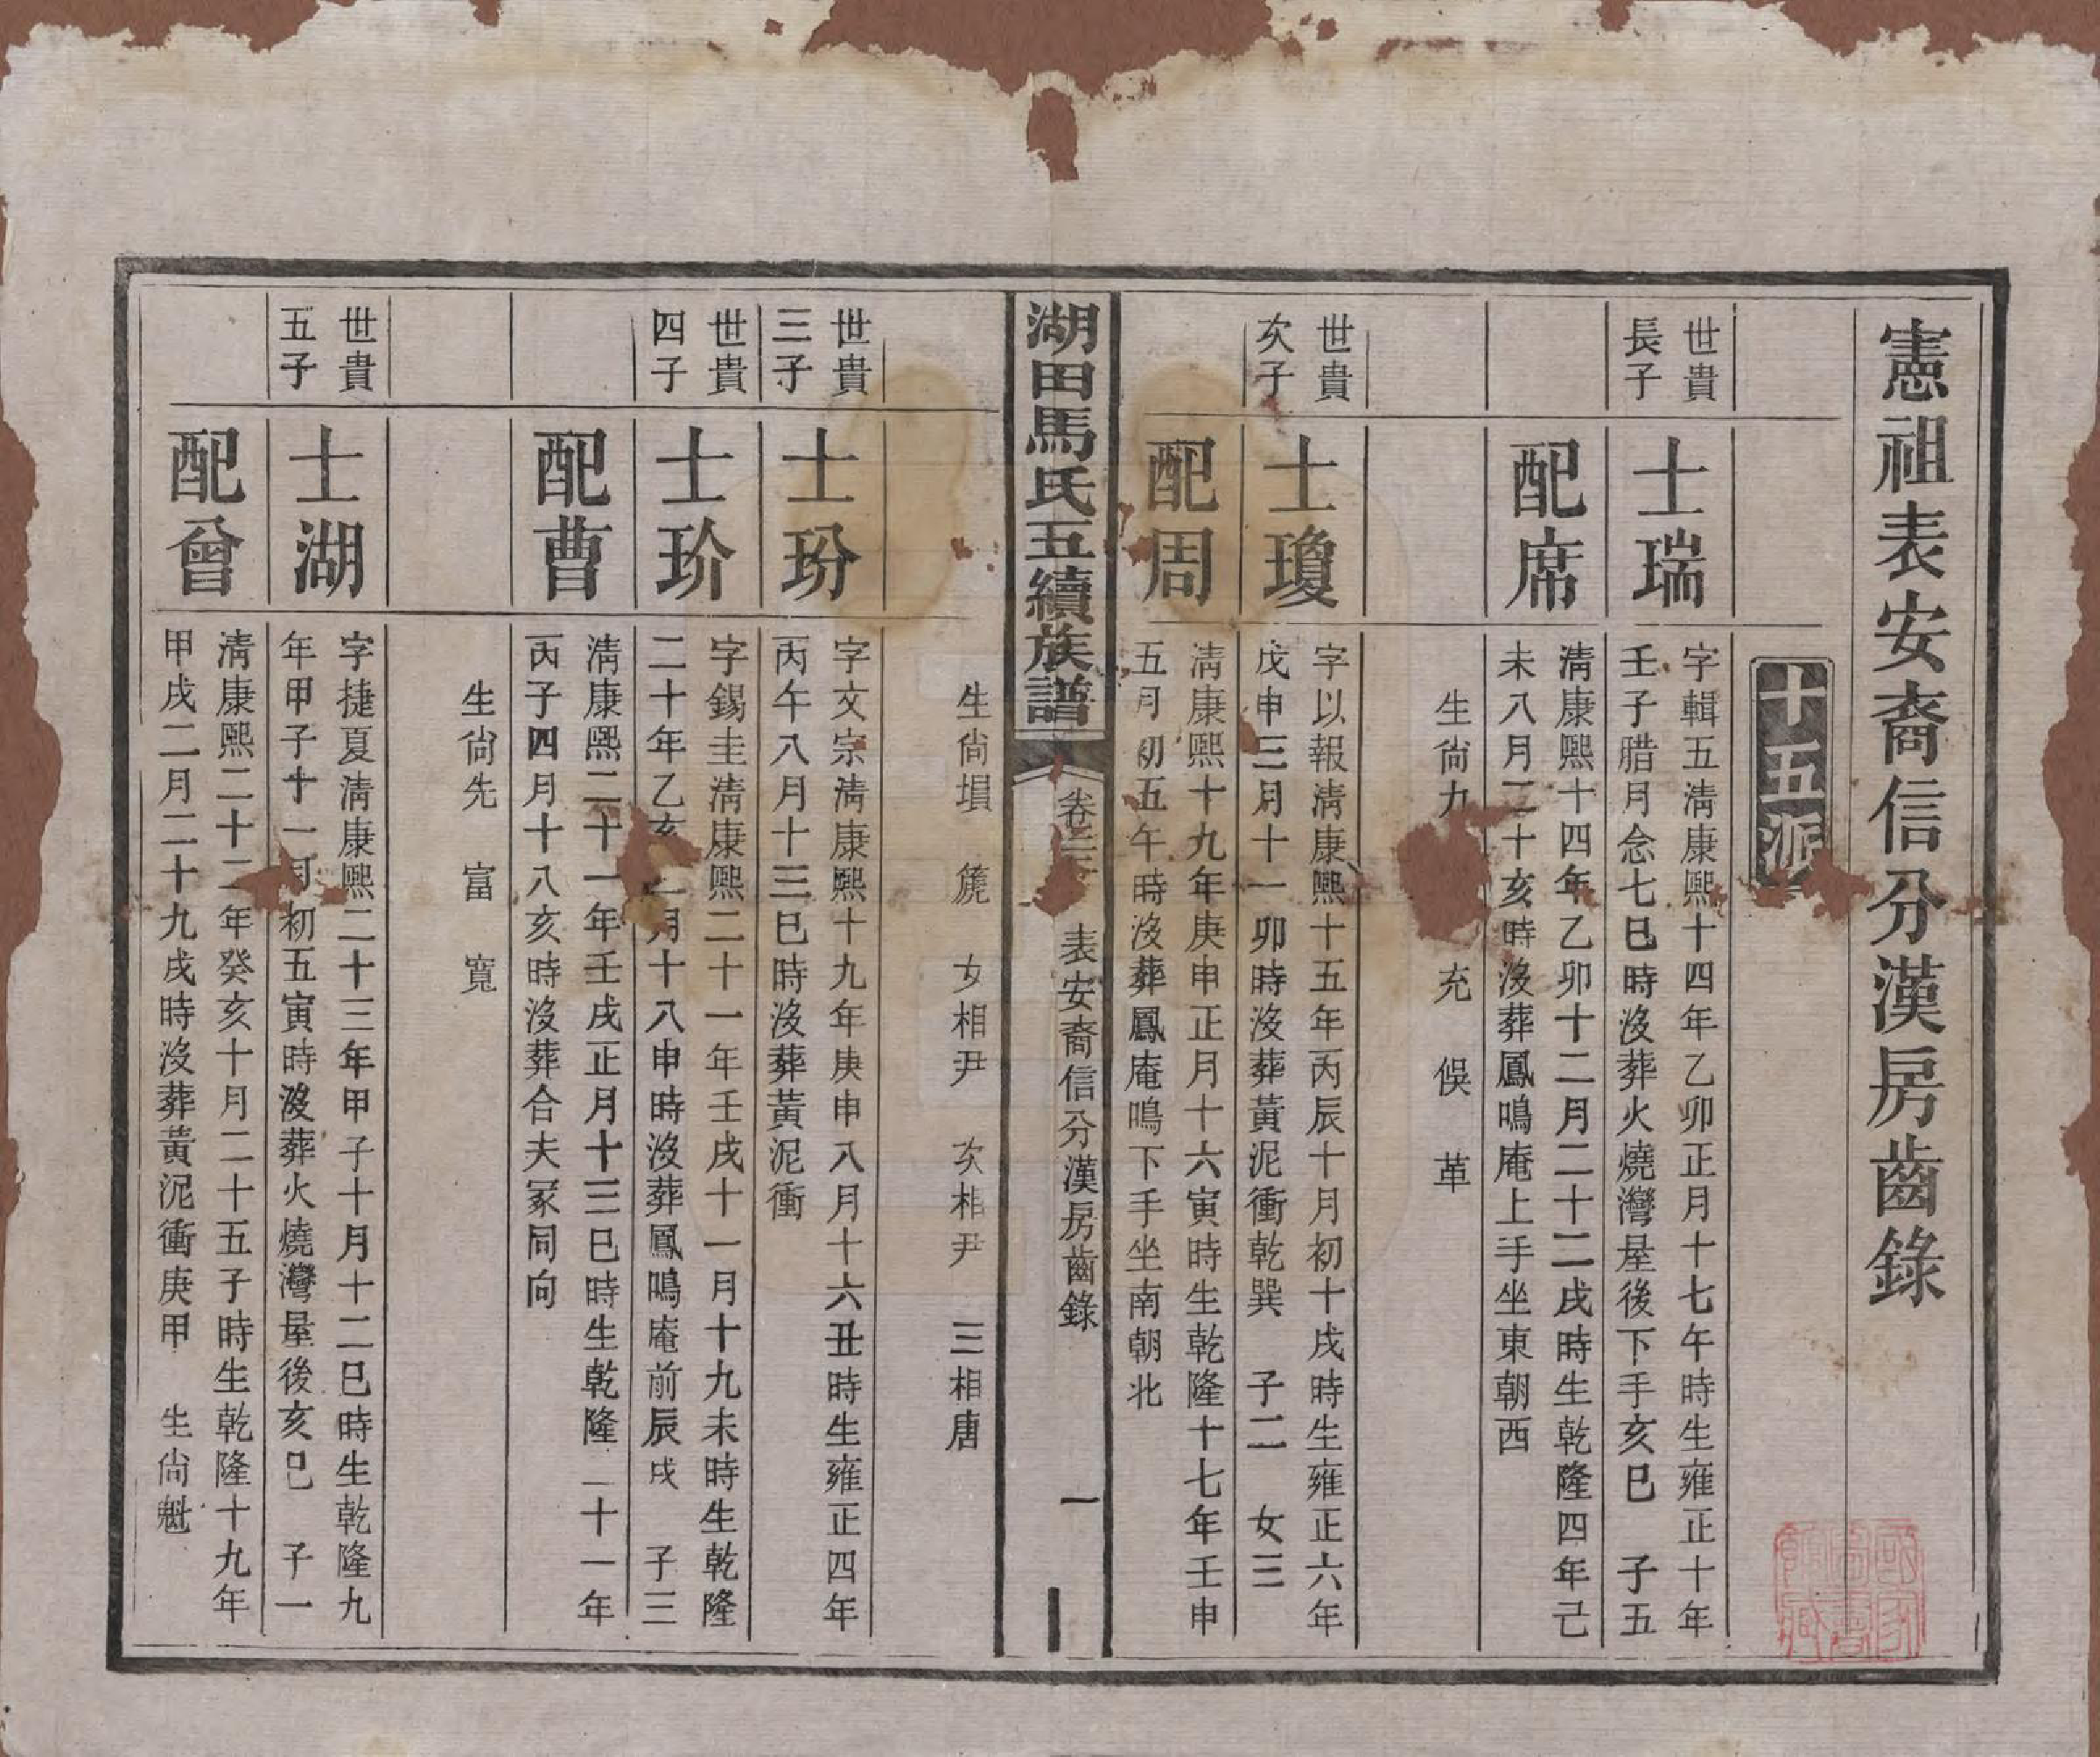 憲祖表安裔信分漢房齒錄
十五派
世貴
長子
士瑞
字輯五淸康熙十四年乙卯正月十七午時生雍正十年
壬子腊月念七巳時沒葬火燒灣屋後下手亥巳　子五
配席
淸康熙十四年乙卯十二月二十二戌時生乾隆四年己
未八月二十亥時沒葬鳳鳴庵上手坐東朝西
生尙九　充　俁　革
世貴
次子
士瓊
字以報淸康熙十五年丙辰十月初十戌時生雍正六年
戊申三月十一卯時沒葬黃泥衝乾巽　子二　女三
配周
淸康熙十九年庚申正月十六寅時生乾隆十七年壬申
五月初五午時沒葬鳳庵鳴下手坐南朝北
湖田馬氏五續族譜
卷
表安裔信分漢房齒錄
一
生尙塤　篪　女相尹　次相尹　三相唐
世貴
三子
士玢
字文宗淸康熙十九年庚申八月十六丑時生雍正四年
丙午八月十三巳時沒葬黃泥衝
世貴
四子
士玠
字錫圭淸康熙二十一年壬戌十一月十九未時生乾隆
二十年乙亥二月十八申時沒葬鳳鳴庵前辰戌　子三
配曹
淸康熙二十一年壬戌正月十三巳時生乾隆二十一年
丙子四月十八亥時沒葬合夫冢同向
生尙先　富　寬
世貴
五子
士湖
字捷夏淸康熙二十三年甲子十月十二巳時生乾隆九
年甲子十一月初五寅時沒葬火燒灣屋後亥巳　子一
配曾
淸康熙二十二年癸亥十月二十五子時生乾隆十九年
甲戌二月二十九戌時沒葬黃泥衝庚甲　生尙魁